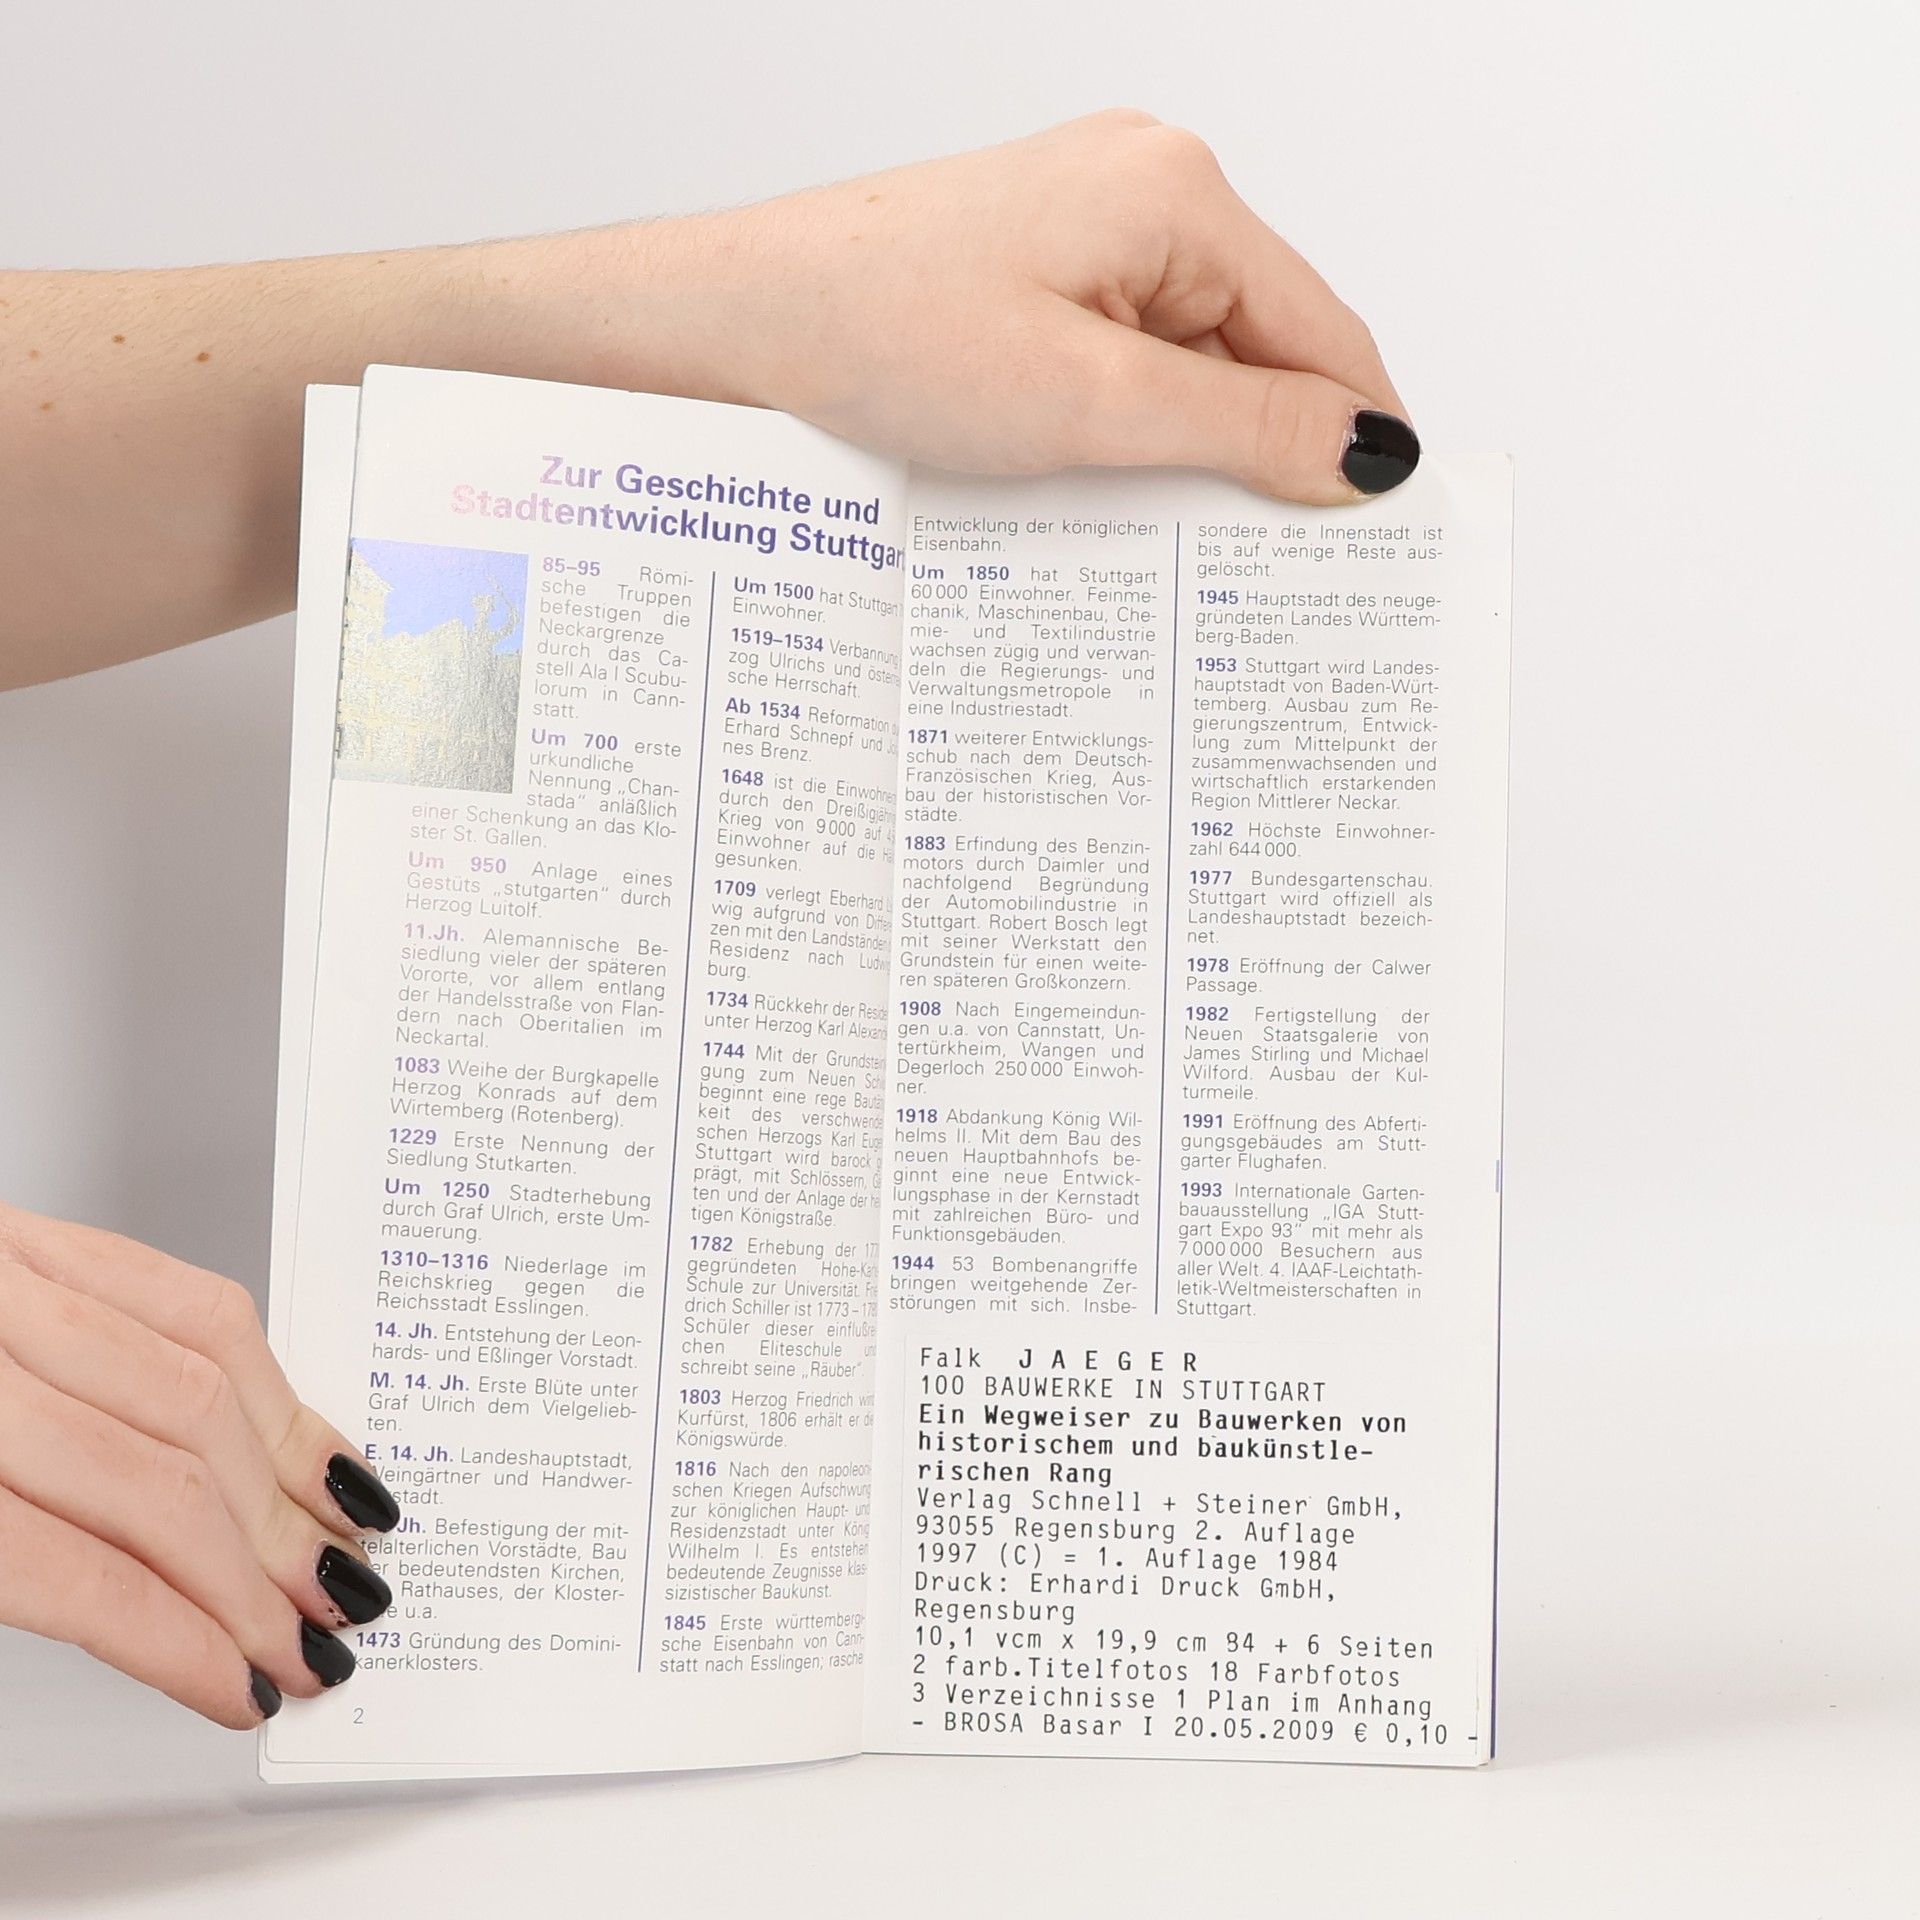 Zur Geschichte und
Stadtentwicklung Stuttgart
85–95 Römi-
sche Truppen
befestigen die
Neckargrenze
durch das Ca-
stell Ala I Scubu-
lorum in Cann-
statt.
Um 700 erste
urkundliche
Nennung „Chan-
stada" anläßlich
einer Schenkung an das Klo-
ster St. Gallen.
Um 950 Anlage eines
Gestüts „stutgarten" durch
Herzog Luitolf.
11.Jh. Alemannische Be-
siedlung vieler der späteren
Vororte, vor allem entlang
der Handelsstraße von Flan-
dern nach Oberitalien im
Neckartal.
1083 Weihe der Burgkapelle
Herzog Konrads auf dem
Wirtemberg (Rotenberg).
1229 Erste Nennung der
Siedlung Stutkarten.
Um 1250 Stadterhebung
durch Graf Ulrich, erste Um-
mauerung.
1310–1316 Niederlage im
Reichskrieg gegen die
Reichsstadt Esslingen.
14. Jh. Entstehung der Leon-
hards- und Eßlinger Vorstadt.
M. 14. Jh. Erste Blüte unter
Graf Ulrich dem Vielgelieb-
ten.
E. 14. Jh. Landeshauptstadt,
Weingärtner und Handwer-
stadt.
Jh. Befestigung der mit-
telalterlichen Vorstädte, Bau
der bedeutendsten Kirchen,
Rathauses, der Kloster-
u.a.
1473 Gründung des Domini-
kanerklosters.
2
Um 1500 hat Stuttgart
Einwohner.
1519–1534 Verbannung
zog Ulrichs und österrei
sche Herrschaft.
Ab 1534 Reformation
Erhard Schnepf und Jo
nes Brenz.
1648 ist die Einwohner
durch den Dreißigjähr
Krieg von 9000 auf
Einwohner auf die Hä
gesunken.
1709 verlegt Eberhard Lu
wig aufgrund von Differe
zen mit den Landständen
Residenz nach Ludwig
burg.
1734 Rückkehr der Reside
unter Herzog Karl Alexand
1744 Mit der Grundstein
gung zum Neuen Schl
beginnt eine rege Bautät
keit des verschwende
schen Herzogs Karl Euge
Stuttgart wird barock g
prägt, mit Schlössern, Gä
ten und der Anlage der heu
tigen Königstraße.
1782 Erhebung der 177
gegründeten Hohe-Karls
Schule zur Universität. Frie
drich Schiller ist 1773–178
Schüler dieser einflußrei
chen Eliteschule und
schreibt seine „Räuber".
1803 Herzog Friedrich wird
Kurfürst, 1806 erhält er die
Königswürde.
1816 Nach den napoleoni-
schen Kriegen Aufschwung
zur königlichen Haupt- und
Residenzstadt unter König
Wilhelm I. Es entstehen
bedeutende Zeugnisse klas-
sizistischer Baukunst.
1845 Erste württembergi-
sche Eisenbahn von Cann-
statt nach Esslingen; rasche
Entwicklung der königlichen
Eisenbahn.
Um 1850 hat Stuttgart
60 000 Einwohner. Feinme-
chanik, Maschinenbau, Che-
mie- und Textilindustrie
wachsen zügig und verwan-
deln die Regierungs- und
Verwaltungsmetropole in
eine Industriestadt.
1871 weiterer Entwicklungs-
schub nach dem Deutsch-
Französischen Krieg, Aus-
bau der historistischen Vor-
städte.
1883 Erfindung des Benzin-
motors durch Daimler und
nachfolgend Begründung
der Automobilindustrie in
Stuttgart. Robert Bosch legt
mit seiner Werkstatt den
Grundstein für einen weite-
ren späteren Großkonzern.
1908 Nach Eingemeindun-
gen u.a. von Cannstatt, Un-
tertürkheim, Wangen und
Degerloch 250 000 Einwoh-
ner.
1918 Abdankung König Wil-
helms II. Mit dem Bau des
neuen Hauptbahnhofs be-
ginnt eine neue Entwick-
lungsphase in der Kernstadt
mit zahlreichen Büro- und
Funktionsgebäuden.
1944 53 Bombenangriffe
bringen weitgehende Zer-
störungen mit sich. Insbe-
sondere die Innenstadt ist
bis auf wenige Reste aus-
gelöscht.
1945 Hauptstadt des neuge-
gründeten Landes Württem-
berg-Baden.
1953 Stuttgart wird Landes-
hauptstadt von Baden-Würt-
temberg. Ausbau zum Re-
gierungszentrum, Entwick-
lung zum Mittelpunkt der
zusammenwachsenden und
wirtschaftlich erstarkenden
Region Mittlerer Neckar.
1962 Höchste Einwohner-
zahl 644 000.
1977 Bundesgartenschau.
Stuttgart wird offiziell als
Landeshauptstadt bezeich-
net.
1978 Eröffnung der Calwer
Passage.
1982 Fertigstellung der
Neuen Staatsgalerie von
James Stirling und Michael
Wilford. Ausbau der Kul-
turmeile.
1991 Eröffnung des Abferti-
gungsgebäudes am Stutt-
garter Flughafen.
1993 Internationale Garten-
bauausstellung „IGA Stutt-
gart Expo 93" mit mehr als
7 000 000 Besuchern aus
aller Welt. 4. IAAF-Leichtath-
letik-Weltmeisterschaften in
Stuttgart.
Falk J A E G E R
100 BAUWERKE IN STUTTGART
Ein Wegweiser zu Bauwerken von
historischem und baukünstle-
rischen Rang
Verlag Schnell + Steiner GmbH,
93055 Regensburg 2. Auflage
1997 (C) = 1. Auflage 1984
Druck: Erhardi Druck GmbH,
Regensburg
10,1 vcm x 19,9 cm 84 + 6 Seiten
2 farb.Titelfotos 18 Farbfotos
3 Verzeichnisse 1 Plan im Anhang
- BROSA Basar I 20.05.2009 € 0,10 -